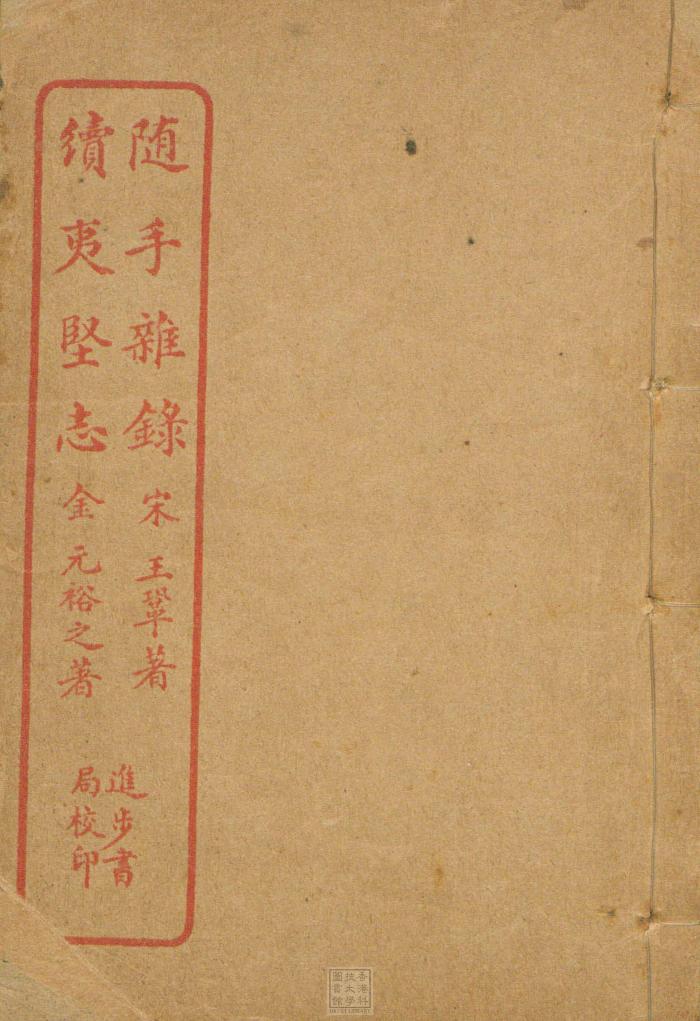 随手雜錄 宋 王鞏著
續夷堅志 金 元裕之著
進步書
局校印
香港科
技大學
圖書館
HKUST LIBRARY